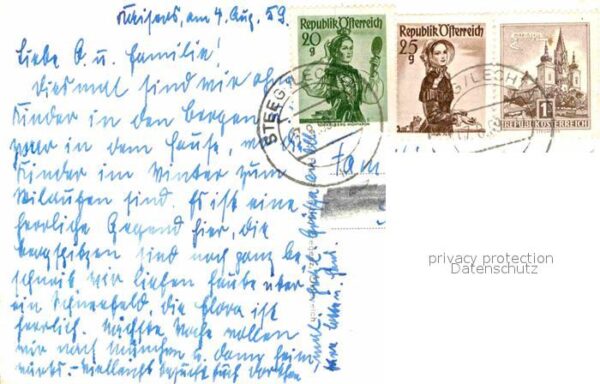 Kaisers, am 4. Aug. 59
Liebe G u. Familie!
Diesmal sind wir ohne
Kinder in den Bergen
zwar in dem Hause, wo
Kinder im Winter zum
Skilaufen sind. Es ist eine
herrliche Gegend hier, die
Bergspitzen sind noch ganz be-
schneit wir liefen heute über
ein Schneefeld, die Flora ist
herrlich. Nächste Woche wollen
wir nach München u. dann heim
wärts. Vielleicht besucht Euch
Grüße an alle
Fam
Republik Österreich
20
g
Republik Österreich
25
g
1
REPUBLIK ÖSTERREICH
STEEG, LECHT
G/LECHT
privacy protection
Datenschutz